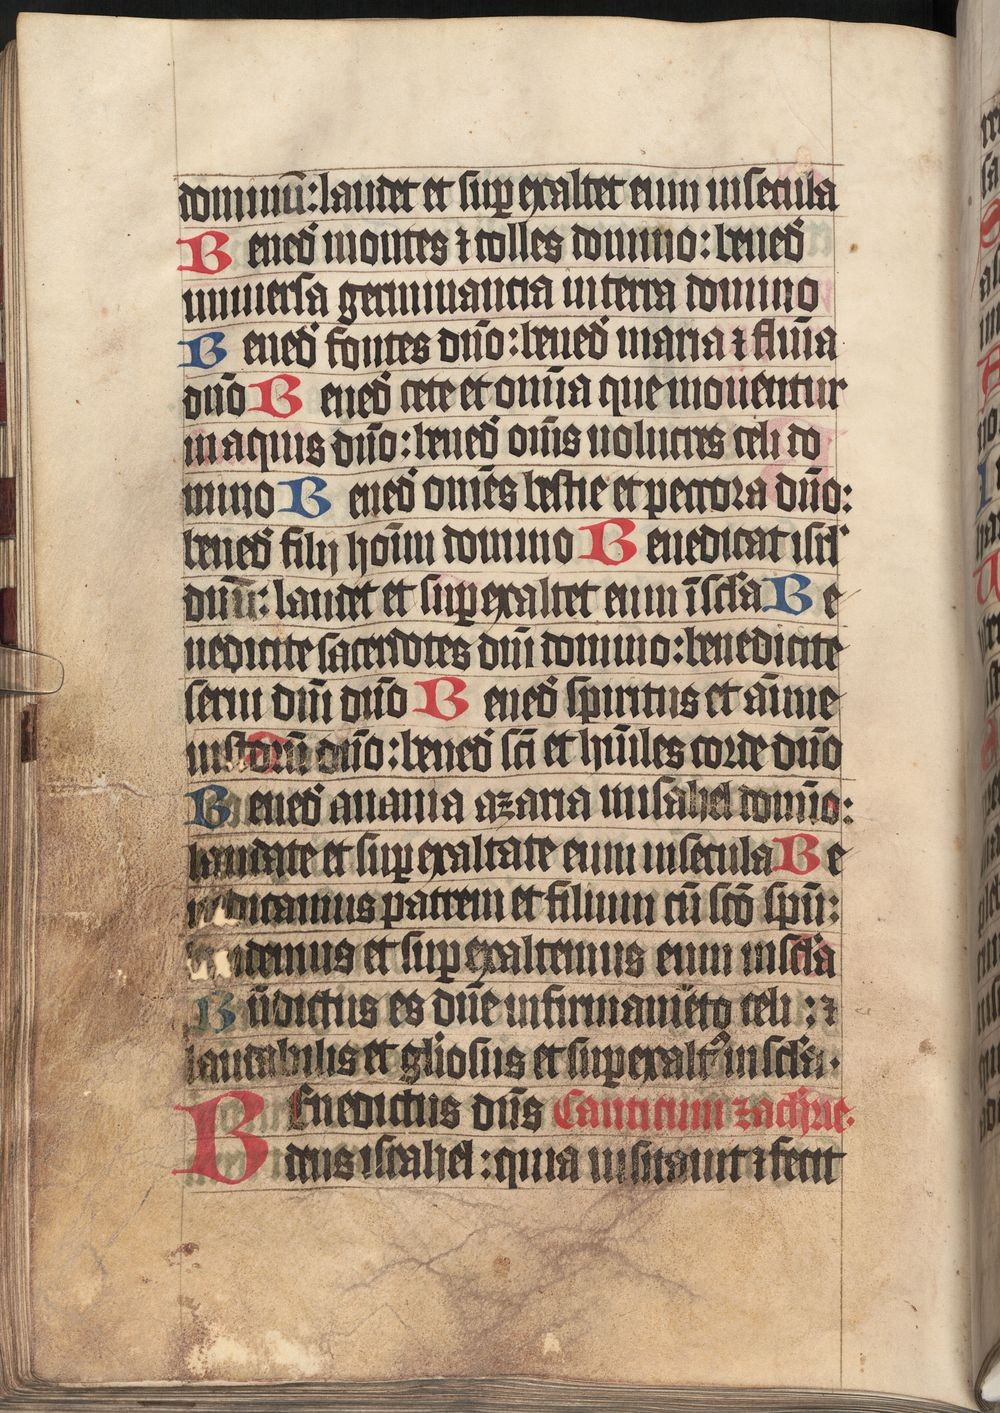 dominū: laudet et sup̱ exaltet eum in secula
Bened̄ montes ⁊ colles domino: bened̄
universa germinancia in terra domino
Bened̄ fontes dn̄o: bened̄ maria ⁊ flum̄a
dn̄o Bened̄ cete et omīa que moventur
in aquis dn̄o: bened̄ om̄s volucres celi do
mino Bened̄ omēs bestie et peccora dn̄o:
bened̄ filij hoīm domino Benedicat isrl̄
dnū: laudet et sup̱ exaltet eum ī scl̄a Be
nedicite sacerdotes dn̄i domino: benedicite
servi dn̄i dn̄o Bened̄ spiritus et aīme
iustorū dn̄o: bened̄ scī et hūiles corde dn̄o
Bened̄ anania azaria misahel domīo:
laudate et sup̱ exaltate eum in secula Be
nedicamus patrem et filium cū scō spū:
laudemus et sup̱ exaltemus eum in scl̄a
Bn̄dictus es dn̄e in firmamēto celi: ⁊
laudabilis et gl̄iosus et sup̱ exaltᵒ in scl̄a.
BEnedictus dn̄s Canticum zacharie.
deus israhel: quia visitavit ⁊ fecit